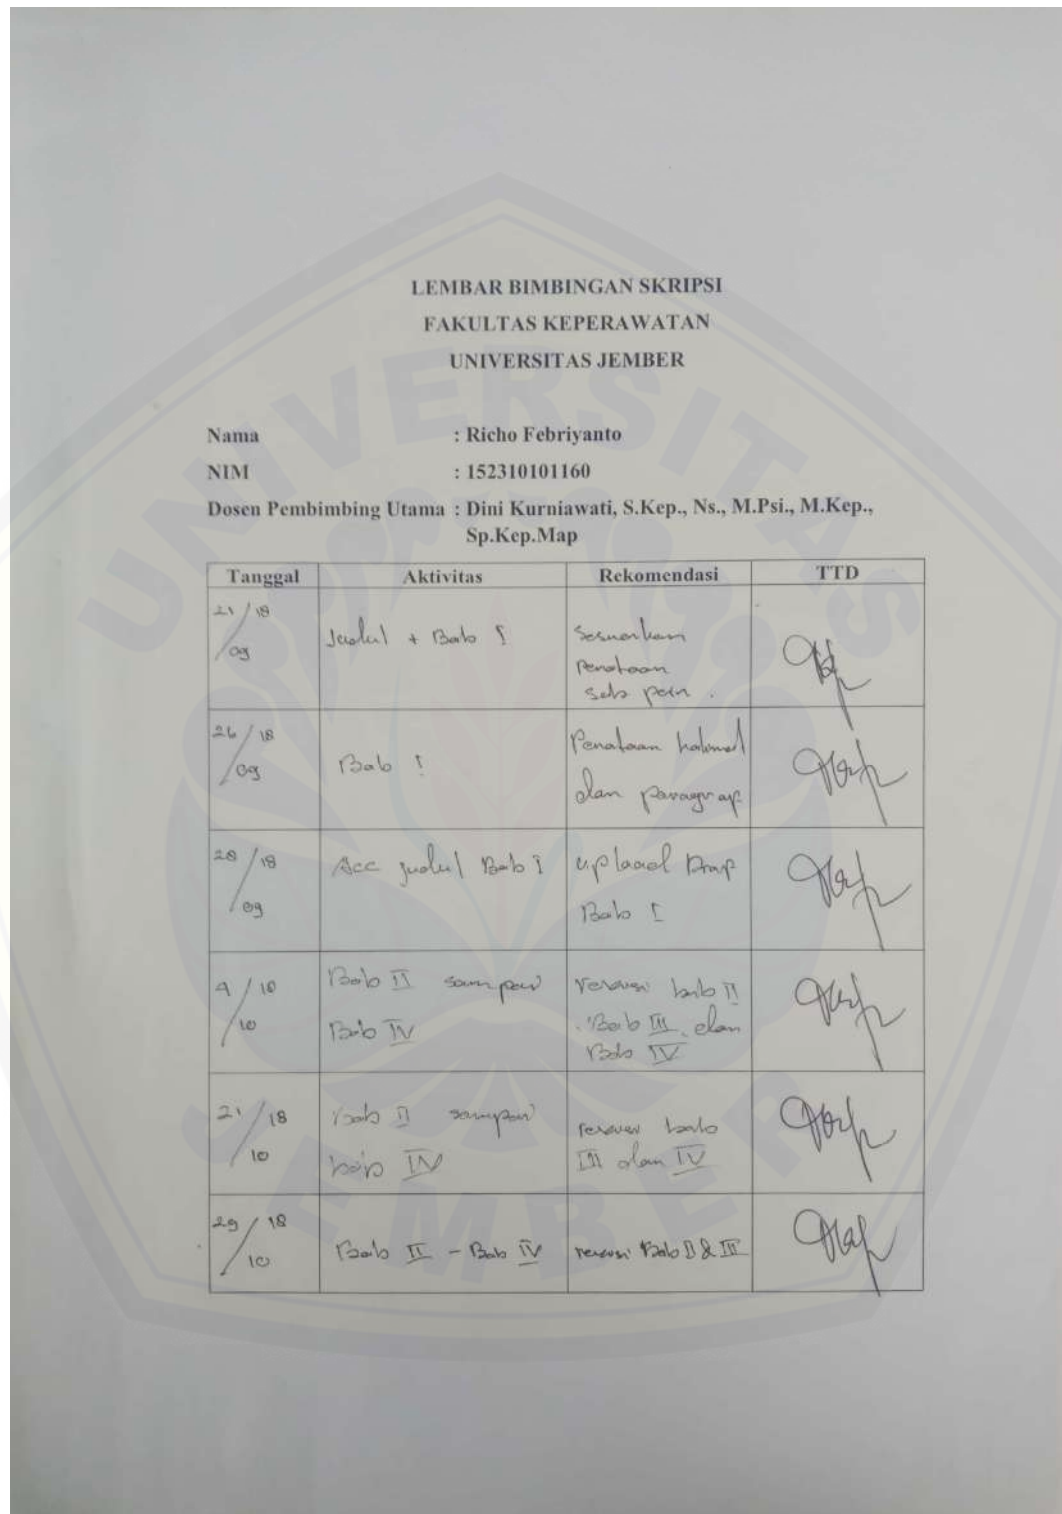 UNIVERSITAS
JEMBER
LEMBAR BIMBINGAN SKRIPSI
FAKULTAS KEPERAWATAN
UNIVERSITAS JEMBER
Nama : Richo Febriyanto
NIM : 152310101160
Dosen Pembimbing Utama : Dini Kurniawati, S.Kep., Ns., M.Psi., M.Kep.,
Sp.Kep.Map
Tanggal Aktivitas Rekomendasi TTD
21/18
/09
Judul + Bab I
Sesuaikan
Penataan
26/18
/09
Bab I
Penataan
dan paragraf
28/18
/09
Acc judul Bab I
upload Draf
Bab I
9/18
/10
Bab II sampai
Bab IV
revisi bab II
Bab III dan
Bab IV
21/18
/10
bab II sampai
bab IV
revisi bab
III dan IV
29/18
/10
Bab II - Bab IV
revisi Bab II & III